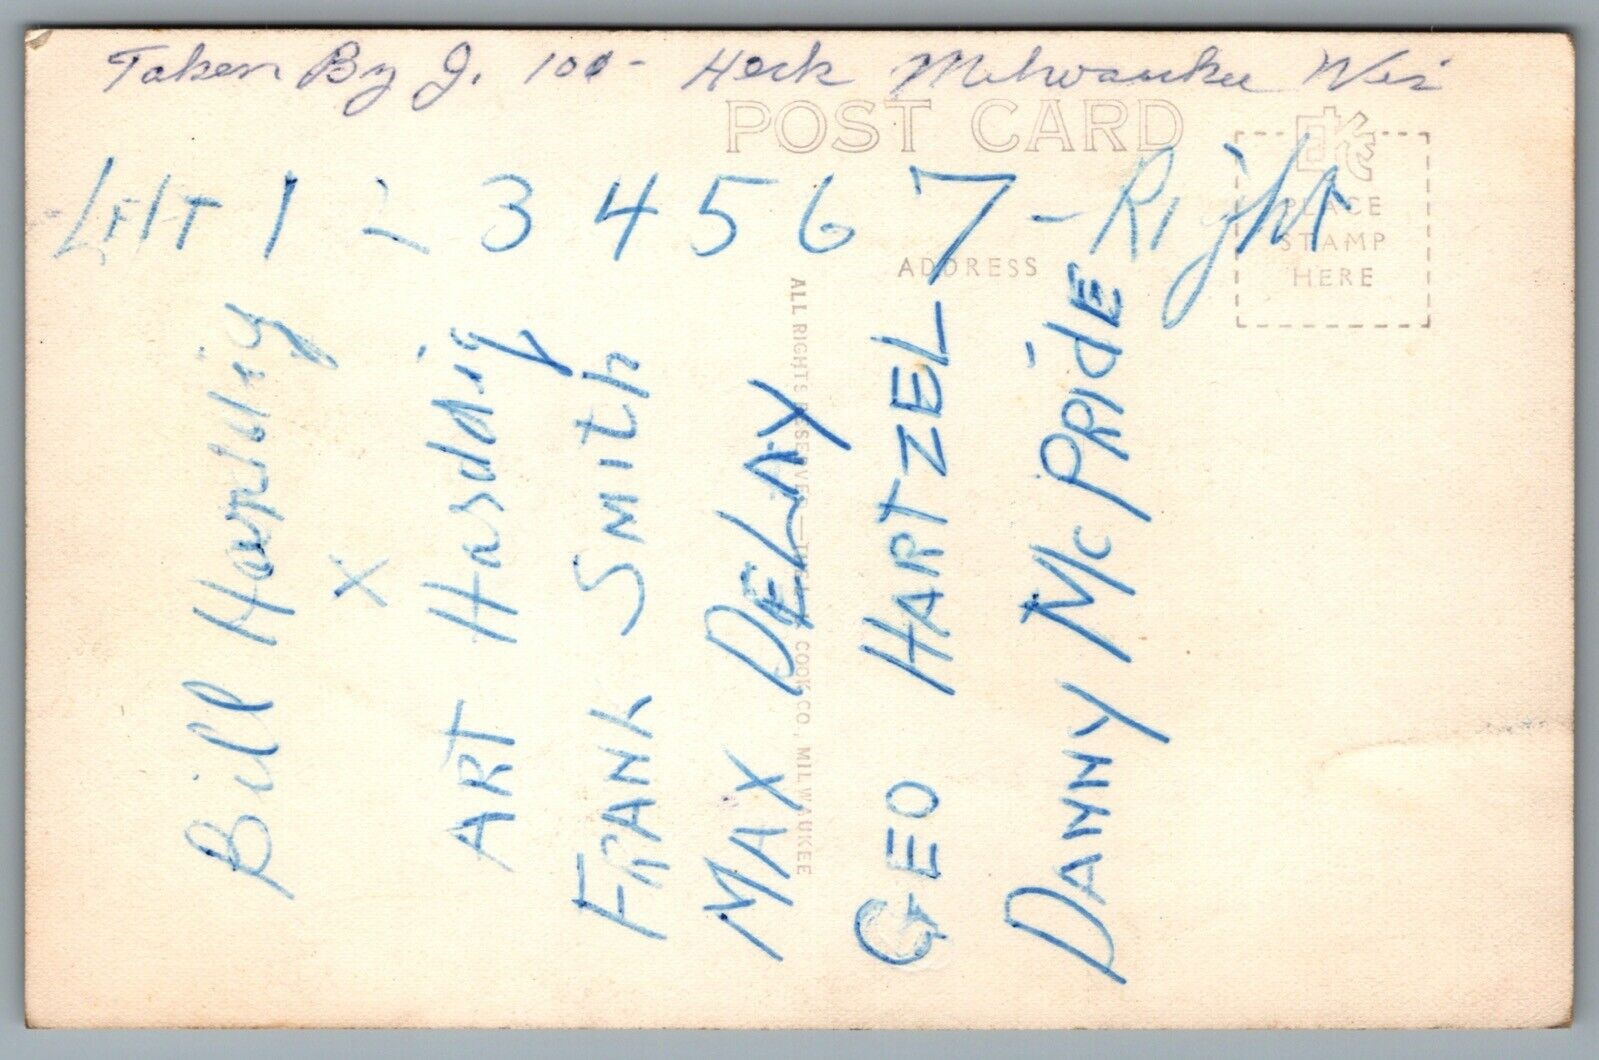 Taken By J. 100 - Heck Milwaukee Wis
POST CARD
LEFT 1 2 3 4 5 6 7 - Right
PLACE
STAMP
HERE
ADDRESS
ALL RIGHTS RESERVED—THE COOK CO., MILWAUKEE
Bill
X
ART Hasddig
FRANK SMITH
MAX DELAY
GEO HARTZELL
DANNY McPRIDE